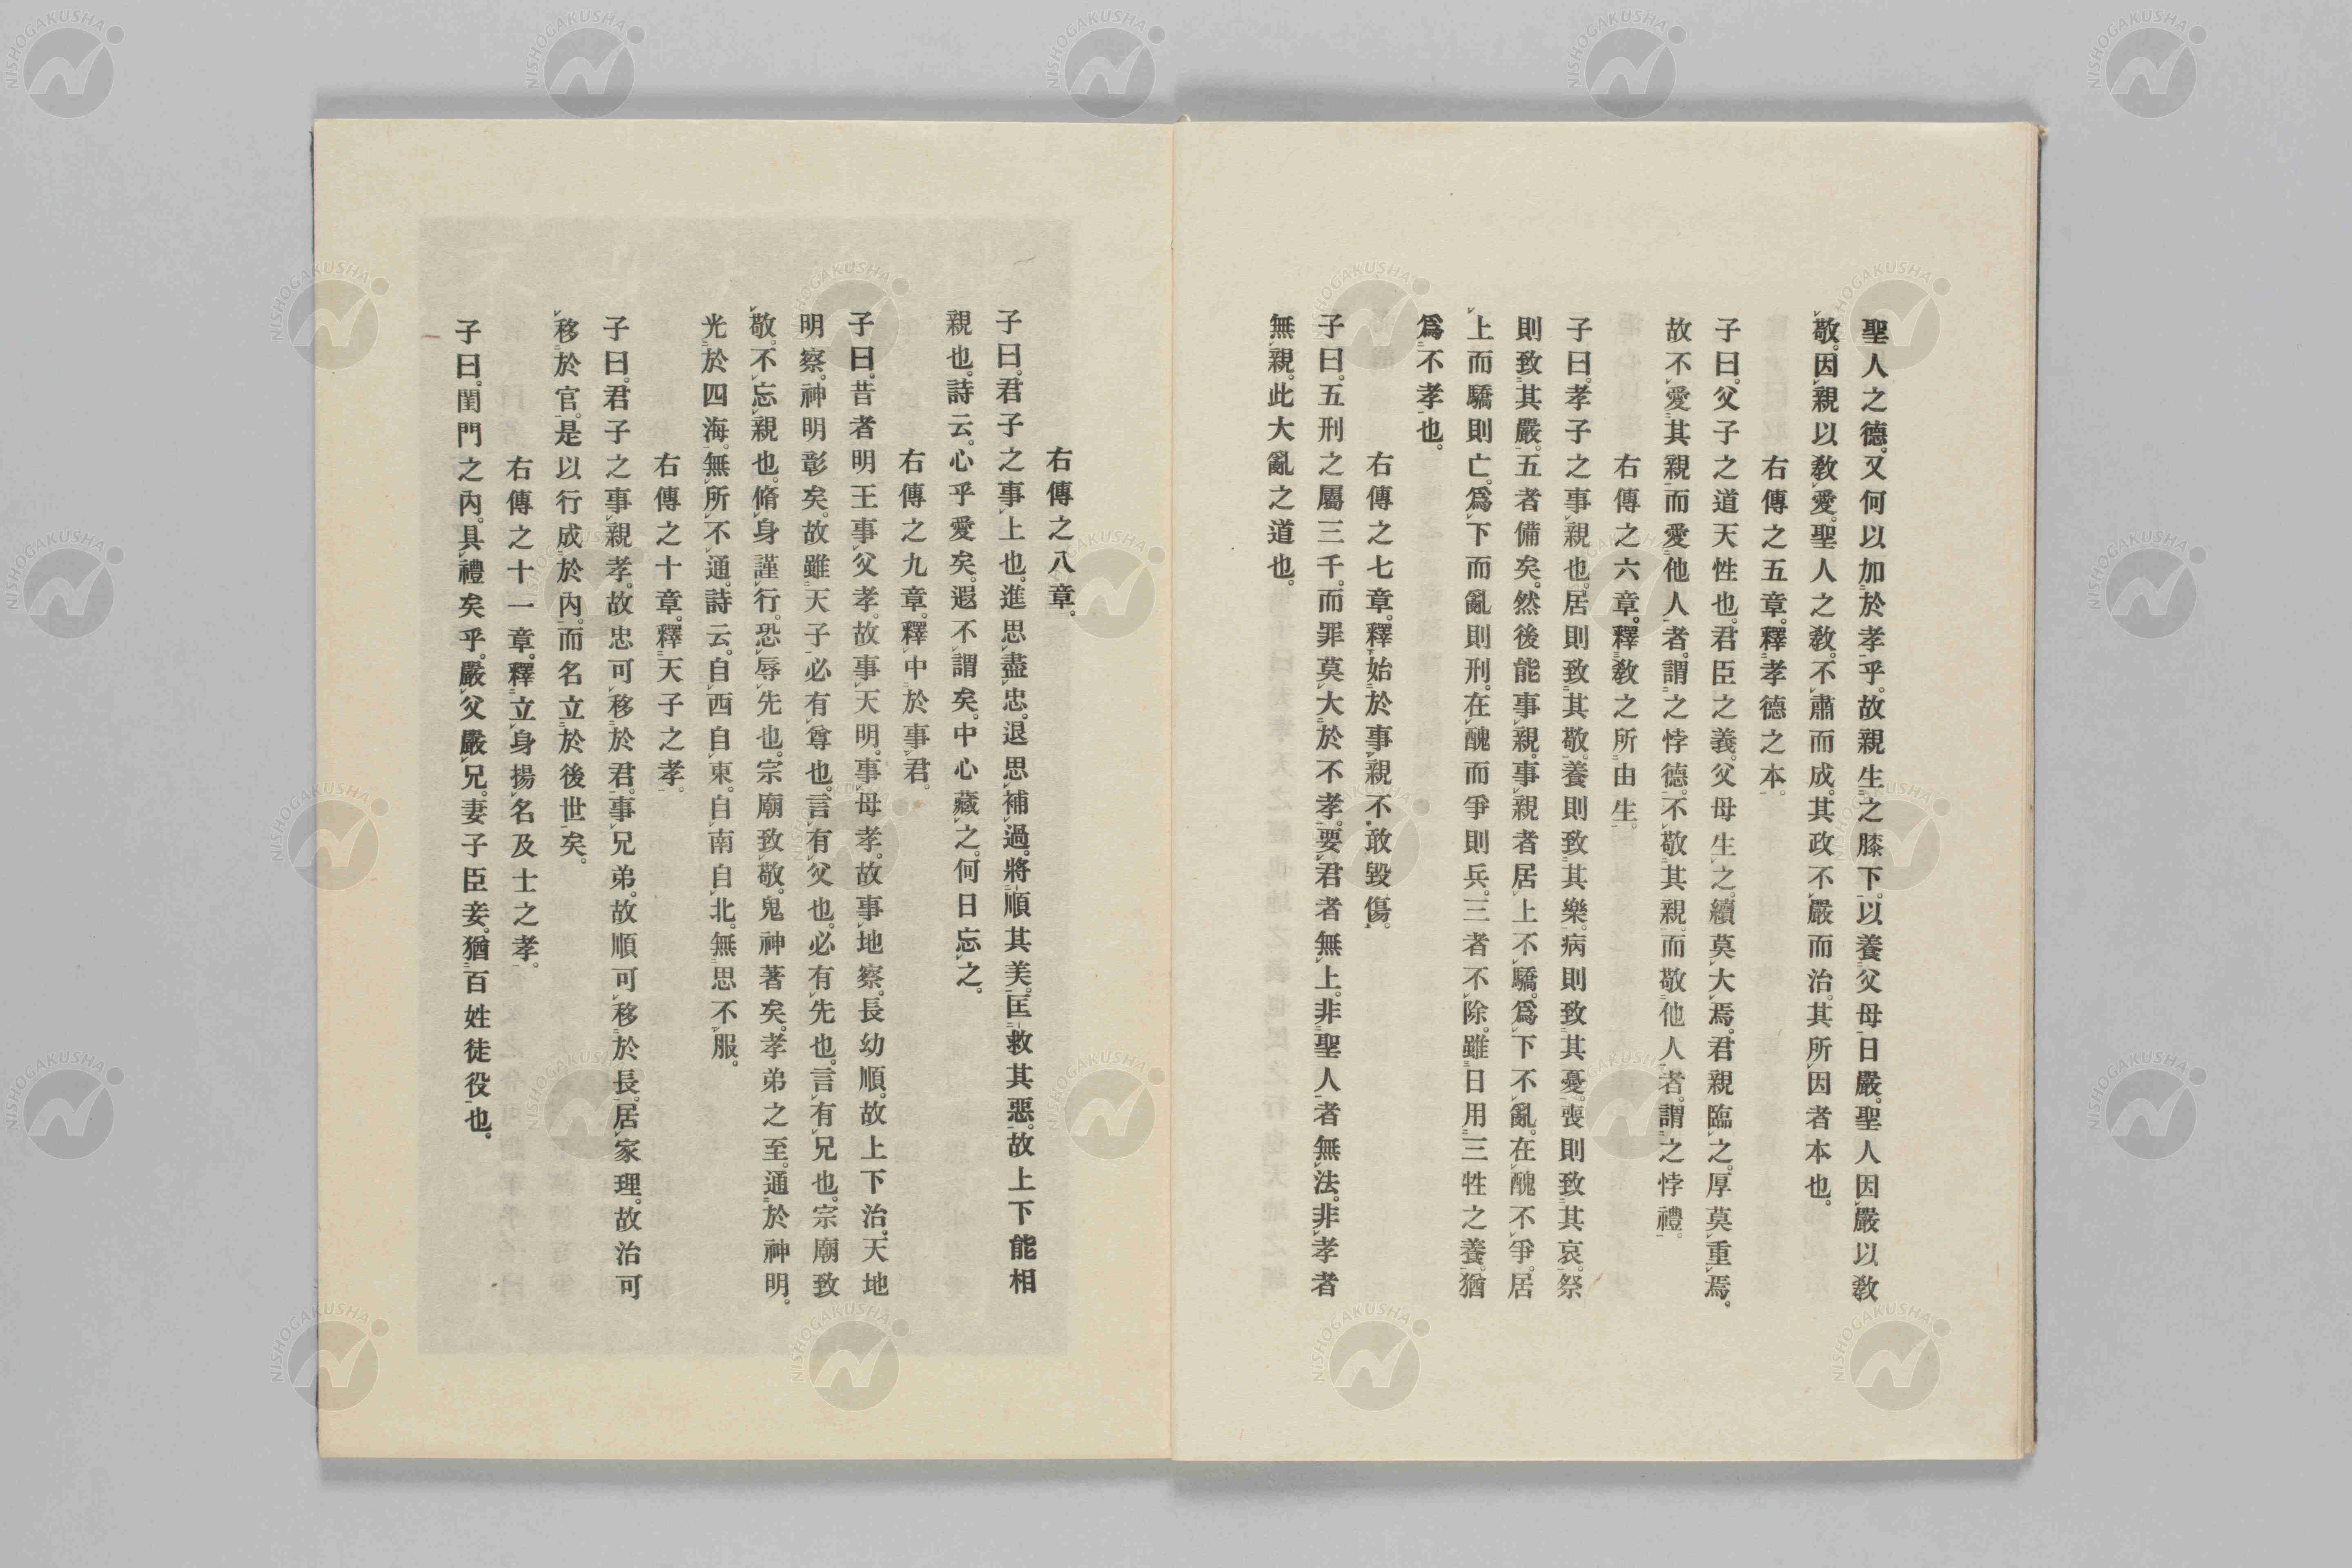 聖人之德。又何以加於孝乎。故親生之膝下。以養父母日嚴。聖人因嚴以敎
敬。因親以敎愛。聖人之敎。不肅而成。其政不嚴而治。其所因者本也。
右傳之五章。釋孝德之本。
子曰。父子之道天性也。君臣之義。父母生之。續莫大焉。君親臨之。厚莫重焉。
故不愛其親而愛他人者。謂之悖德。不敬其親。而敬他人者。謂之悖禮。
右傳之六章。釋敎之所由生。
子曰。孝子之事親也。居則致其敬。養則致其樂。病則致其憂。喪則致其哀。祭
則致其嚴。五者備矣。然後能事親。事親者居上不驕。爲下不亂。在醜不爭。居
上而驕則亡。爲下而亂則刑。在醜而爭則兵。三者不除。雖日用三牲之養。猶
爲不孝也。
右傳之七章。釋始於事親不敢毀傷。
子曰。五刑之屬三千。而罪莫大於不孝。要君者無上。非聖人者無法。非孝者
無親。此大亂之道也。
右傳之八章。
子曰。君子之事上也。進思盡忠。退思補過。將順其美。匡救其惡。故上下能相
親也。詩云。心乎愛矣。遐不謂矣。中心藏之。何日忘之。
右傳之九章。釋中於事君。
子曰。昔者明王事父孝。故事天明。事母孝。故事地察。長幼順。故上下治。天地
明察。神明彰矣。故雖天子必有尊也。言有父也。必有先也。言有兄也。宗廟致
敬。不忘親也。脩身謹行。恐辱先也。宗廟致敬。鬼神著矣。孝弟之至。通於神明。
光於四海。無所不通。詩云。自西自東。自南自北。無思不服。
右傳之十章。釋天子之孝。
子曰。君子之事親孝。故忠可移於君。事兄弟。故順可移於長。居家理。故治可
移於官。是以行成於內。而名立於後世矣。
右傳之十一章。釋立身揚名及士之孝。
子曰。閨門之內。具禮矣乎。嚴父嚴兄。妻子臣妾。猶百姓徒役也。
NISHOGAKUSHA